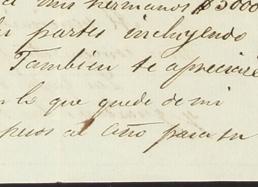 mis hermanos $5000
partes incluyendo
Tambien te apreciaré
lo que quede de mi
pesos al año para su